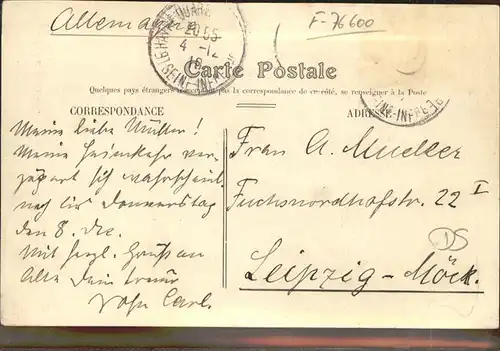 Allemagne
F-76600
LE HAVRE-QUAI
20 55
4 -12
10
(SEINE-INFRE)
Carte Postale
Quelques pays étrangers n'acceptent pas la correspondance de ce côté, se renseigner à la Poste
CORRESPONDANCE
ADRESSE
Meine liebe Mutter!
Meine Heimkehr ver-
zögert sich wahrschein-
lich bis Donnerstag
den 8. Dec.
Mit herzl. Gruss an
Alle Dein treuer
Sohn Carl.
Frau A. Mueller
Fuchsnordhofstr. 22 I
Leipzig-Möck.
DS